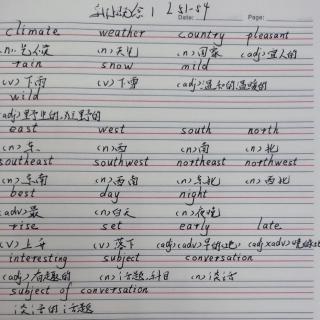 新概念1 L51-54
Date: Page:
climate weather country pleasant
(n)气候 (n)天气 (n)国家 (adj)宜人的
rain snow mild
(v)下雨 (v)下雪 (adj)温和的,温暖的
wild
east west south north
(n)东 (n)西 (n)南 (n)北
southeast southwest northeast northwest
(n)东南 (n)西南 (n)东北 (n)西北
best day night
(adv)最 (n)白天 (n)夜晚
rise set early late
(v)上升 (v)落下 (adj)(adv)早的/地 (adj)(adv)晚的/地
interesting subject conversation
(adj)有趣的 (n)话题,科目 (n)谈话
subject of conversation
谈话的话题